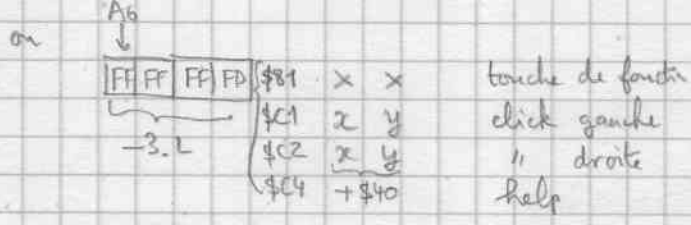 A6
on
FF FF FF FD $81 x x touche de fonctio
-3.L
$C1 x y click gauche
$C2 x y " droite
$C4 +$40 help